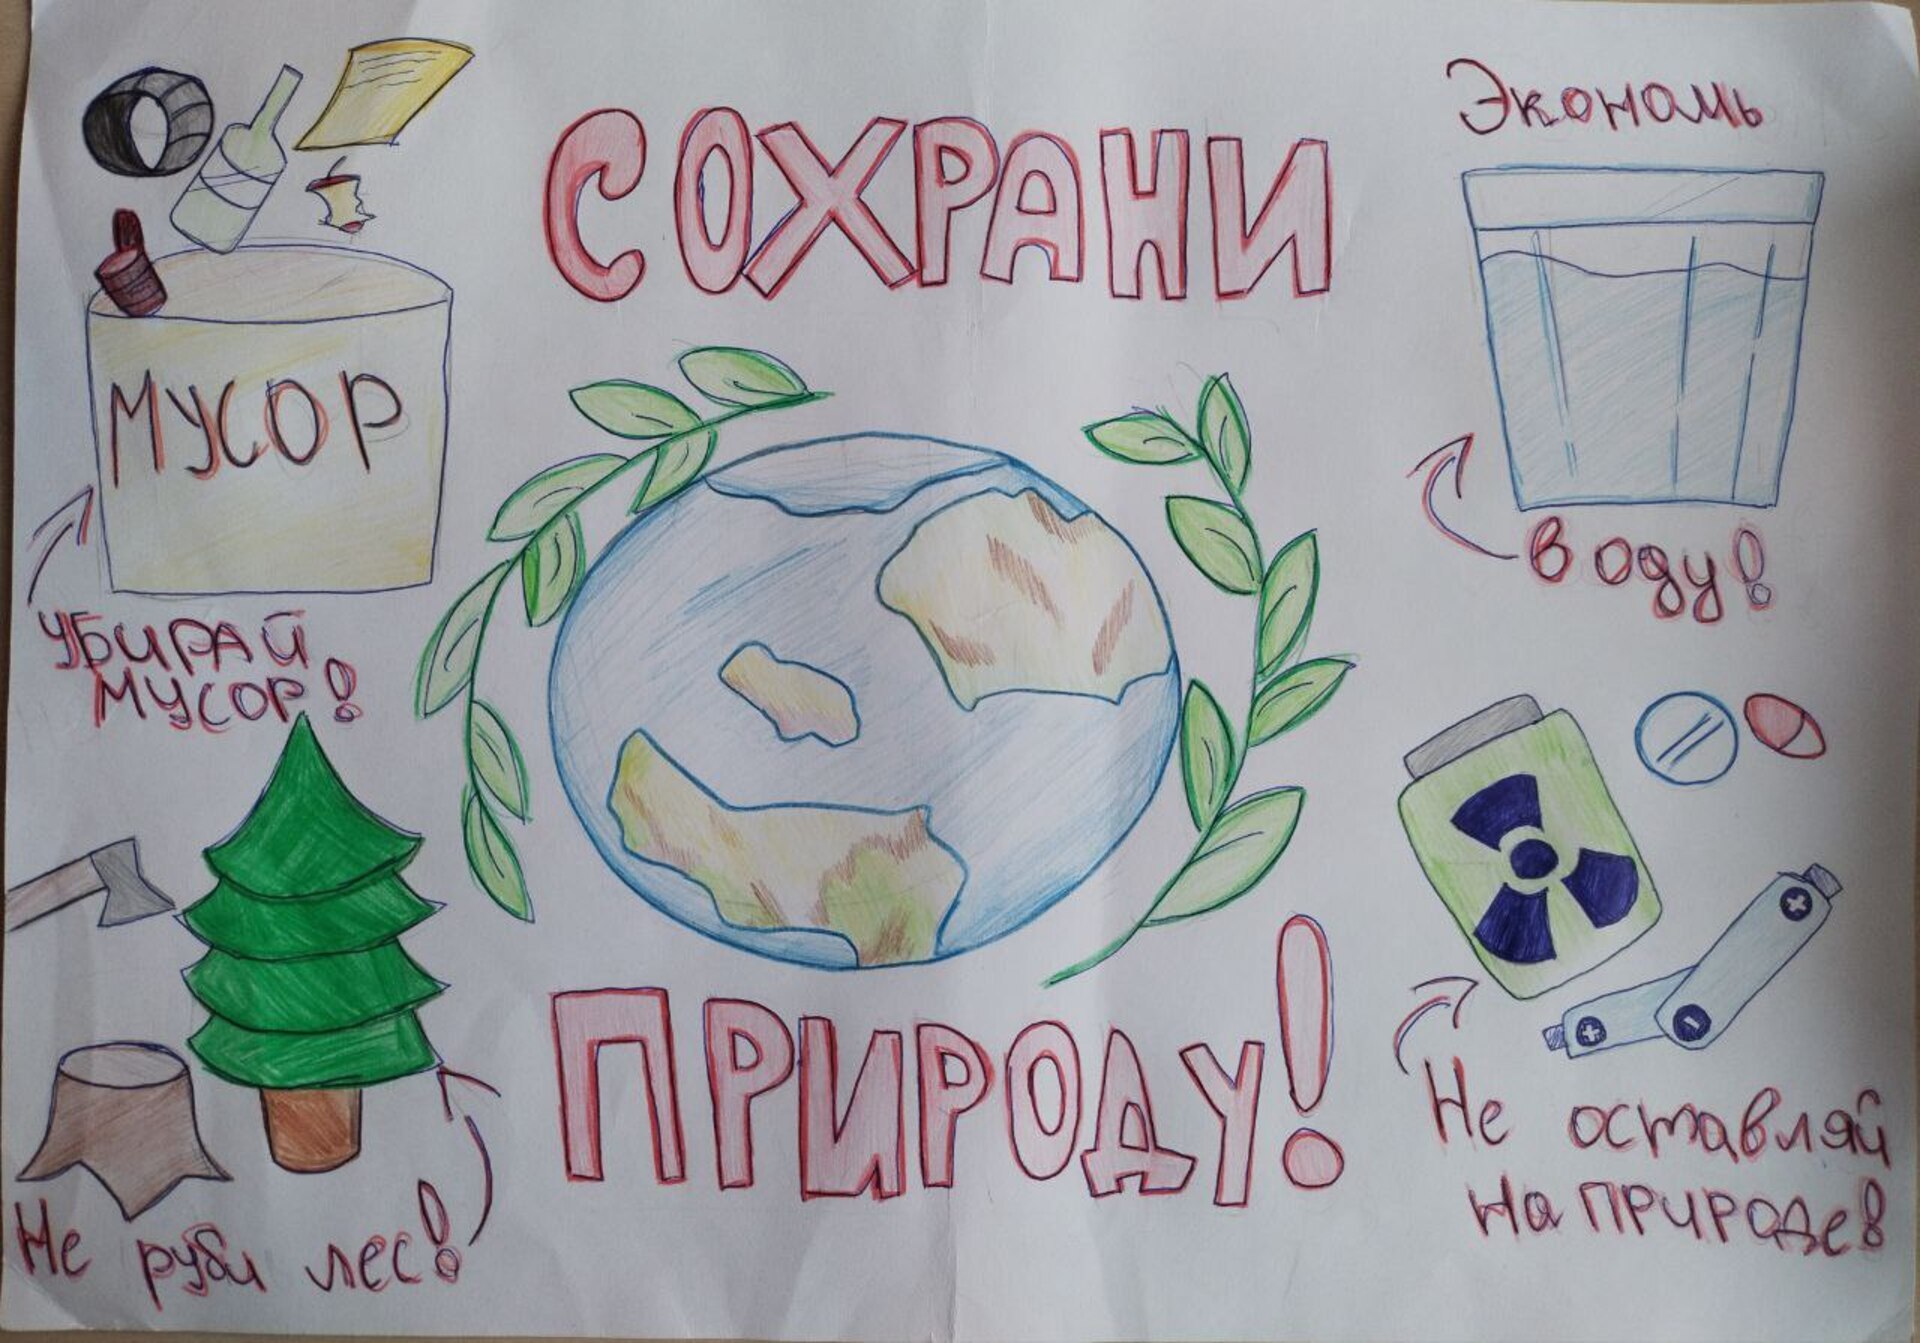 СОХРАНИ
ПРИРОДУ!
МУСОР
УБИРАЙ
МУСОР!
Не руби лес!
Экономь
воду!
Не оставляй
на природе!